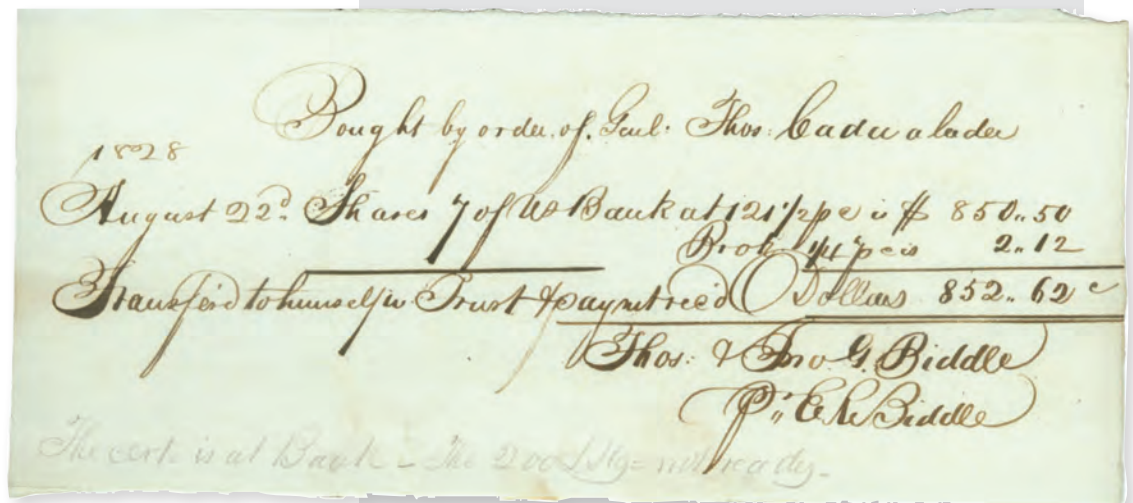 Bought by order of Genl: Thos: Cadwalader
1828
August 22d. Shares 7 of US Bank at 121 1/2 pc is $ 850..50
Brok 1/4 pc is 2..12
Transferd to himself in Trust & paymt rec'd Dollars 852..62c
Thos: & Jno. G. Biddle
Pr. Biddle
The cert. is at Bank - The 200 not ready -